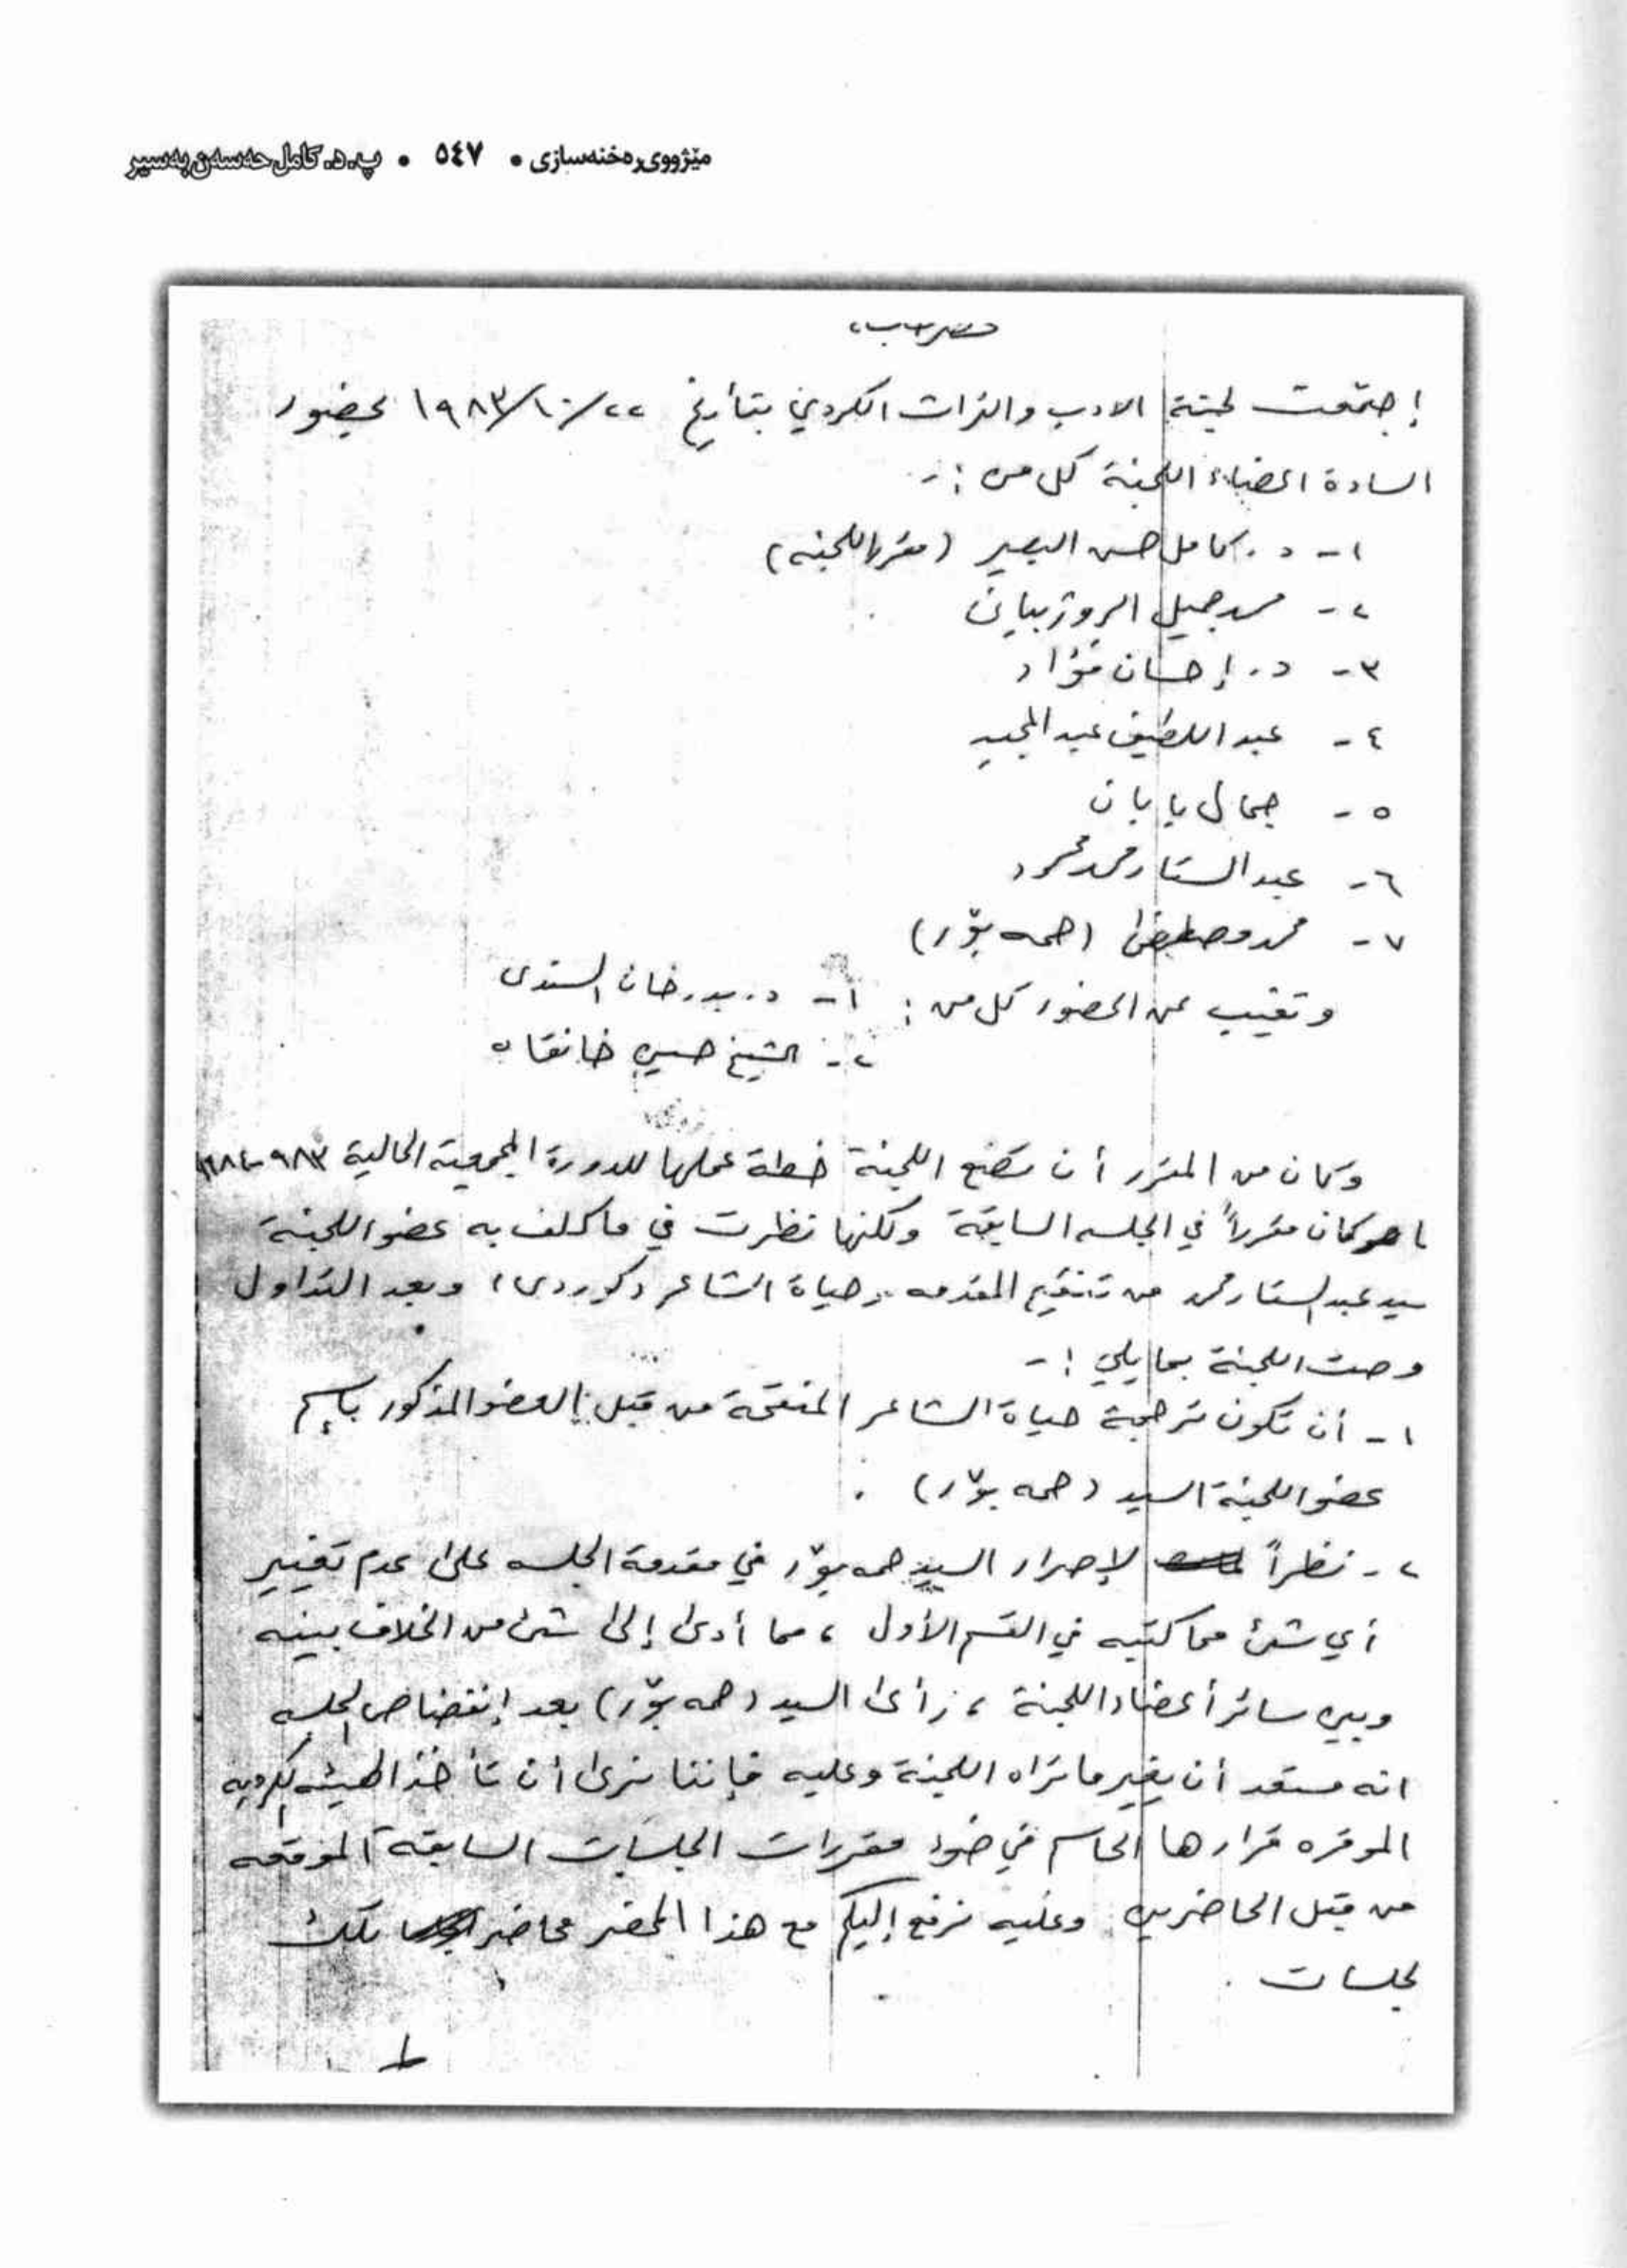 مێژووی ڕەخنەسازی • ٥٤٧ • پ.د. کامل حەسەن بەسیر
إجتمعت لجنة الادب والتراث الكردي بتأريخ ٢٢/١٠/١٩٨٣ بحضور
السادة اعضاء اللجنة كل من :-
١- د. كامل حسن البصير (مقرر اللجنة)
٢- محمد جميل الروژبياني
٣- د. إحسان فؤاد
٤- عبد اللطيف عبد المجيد
٥- جمال بابان
٦- عبد الستار محمد محمود
٧- محمد مصطفى (حمه بۆر)
وتغيب عن الحضور كل من : ١- د. بدرخان السندى
٢- الشيخ حسين خانقاه
وكان من المقرر أن تضع اللجنة خطة عملها للدورة المجمعية الحالية ٩٨٣-١٩٨٤
ما هو كان مقرراً في الجلسه السابقة ولكنها نظرت في ما كلف به عضو اللجنة
سيد عبد الستار محمد من تنقيح المقدمه وحياة الشاعر (كوردى) وبعد التداول
وصت اللجنة بما يلي :-
١- أن تكون ترجمة حياة الشاعر المنقحة من قبل العضو المذكور بإسم
عضو اللجنة السيد (حمه بۆر) .
٢- نظراً لإصرار السيد حمه بۆر في مقدمة الجلسه على عدم تغيير
أي شئ مما كتبه في القسم الأول ، مما أدى إلى شئ من الخلاف بينه
وبين سائر أعضاء اللجنة ، رأى السيد (حمه بۆر) بعد إنفضاض الجلسه
انه مستعد أن يغير ما تراه اللجنة وعليه فإننا نرى أن تأخذ الهيئه الكرديه
الموقره قرارها الحاسم في ضوء مقررات الجلسات السابقة الموقعه
من قبل الحاضرين وعليه نرفع إليكم مع هذا المحضر محاضر تلك
لجلسات .